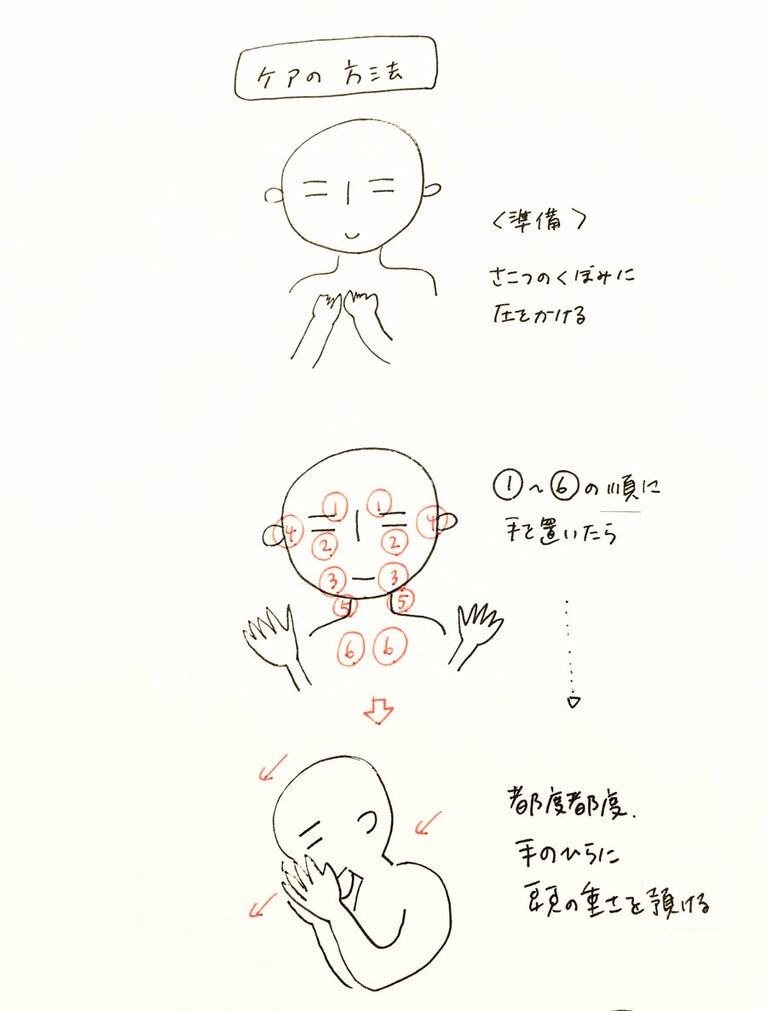 ケアの方法
〈準備〉
さこつのくぼみに
圧をかける
①〜⑥の順に
手を置いたら
1 1
4 4
2 2
3 3
5 5
6 6
都度都度、
手のひらに
頭の重さを預ける